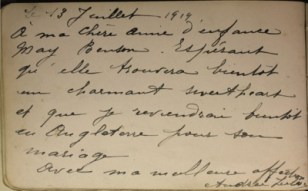 Le 13 Juillet 1919
A ma chère Amie d'enfance
May Benson. Espérant
qu'elle trouvera bientôt
un charmant sweetheart
et que je reviendrai bientôt
en Angleterre pour son
mariage
Avec ma meilleure affect
Andrée